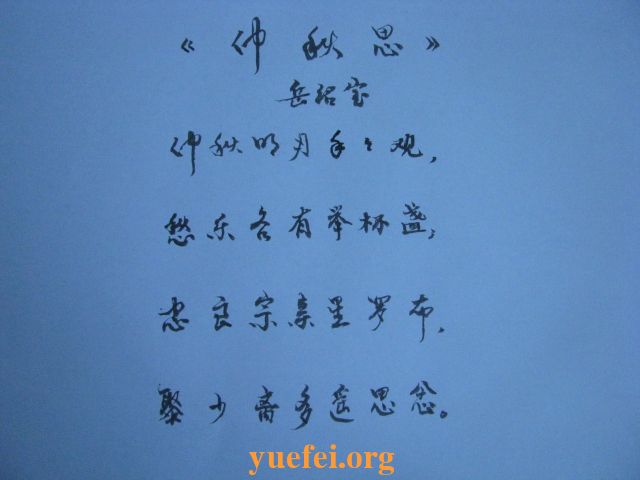 《仲秋思》
岳绍宝
仲秋明月年々观，
愁乐各有举杯盏；
忠良宗亲星罗布，
聚少离多遥思念。
yuefei.org